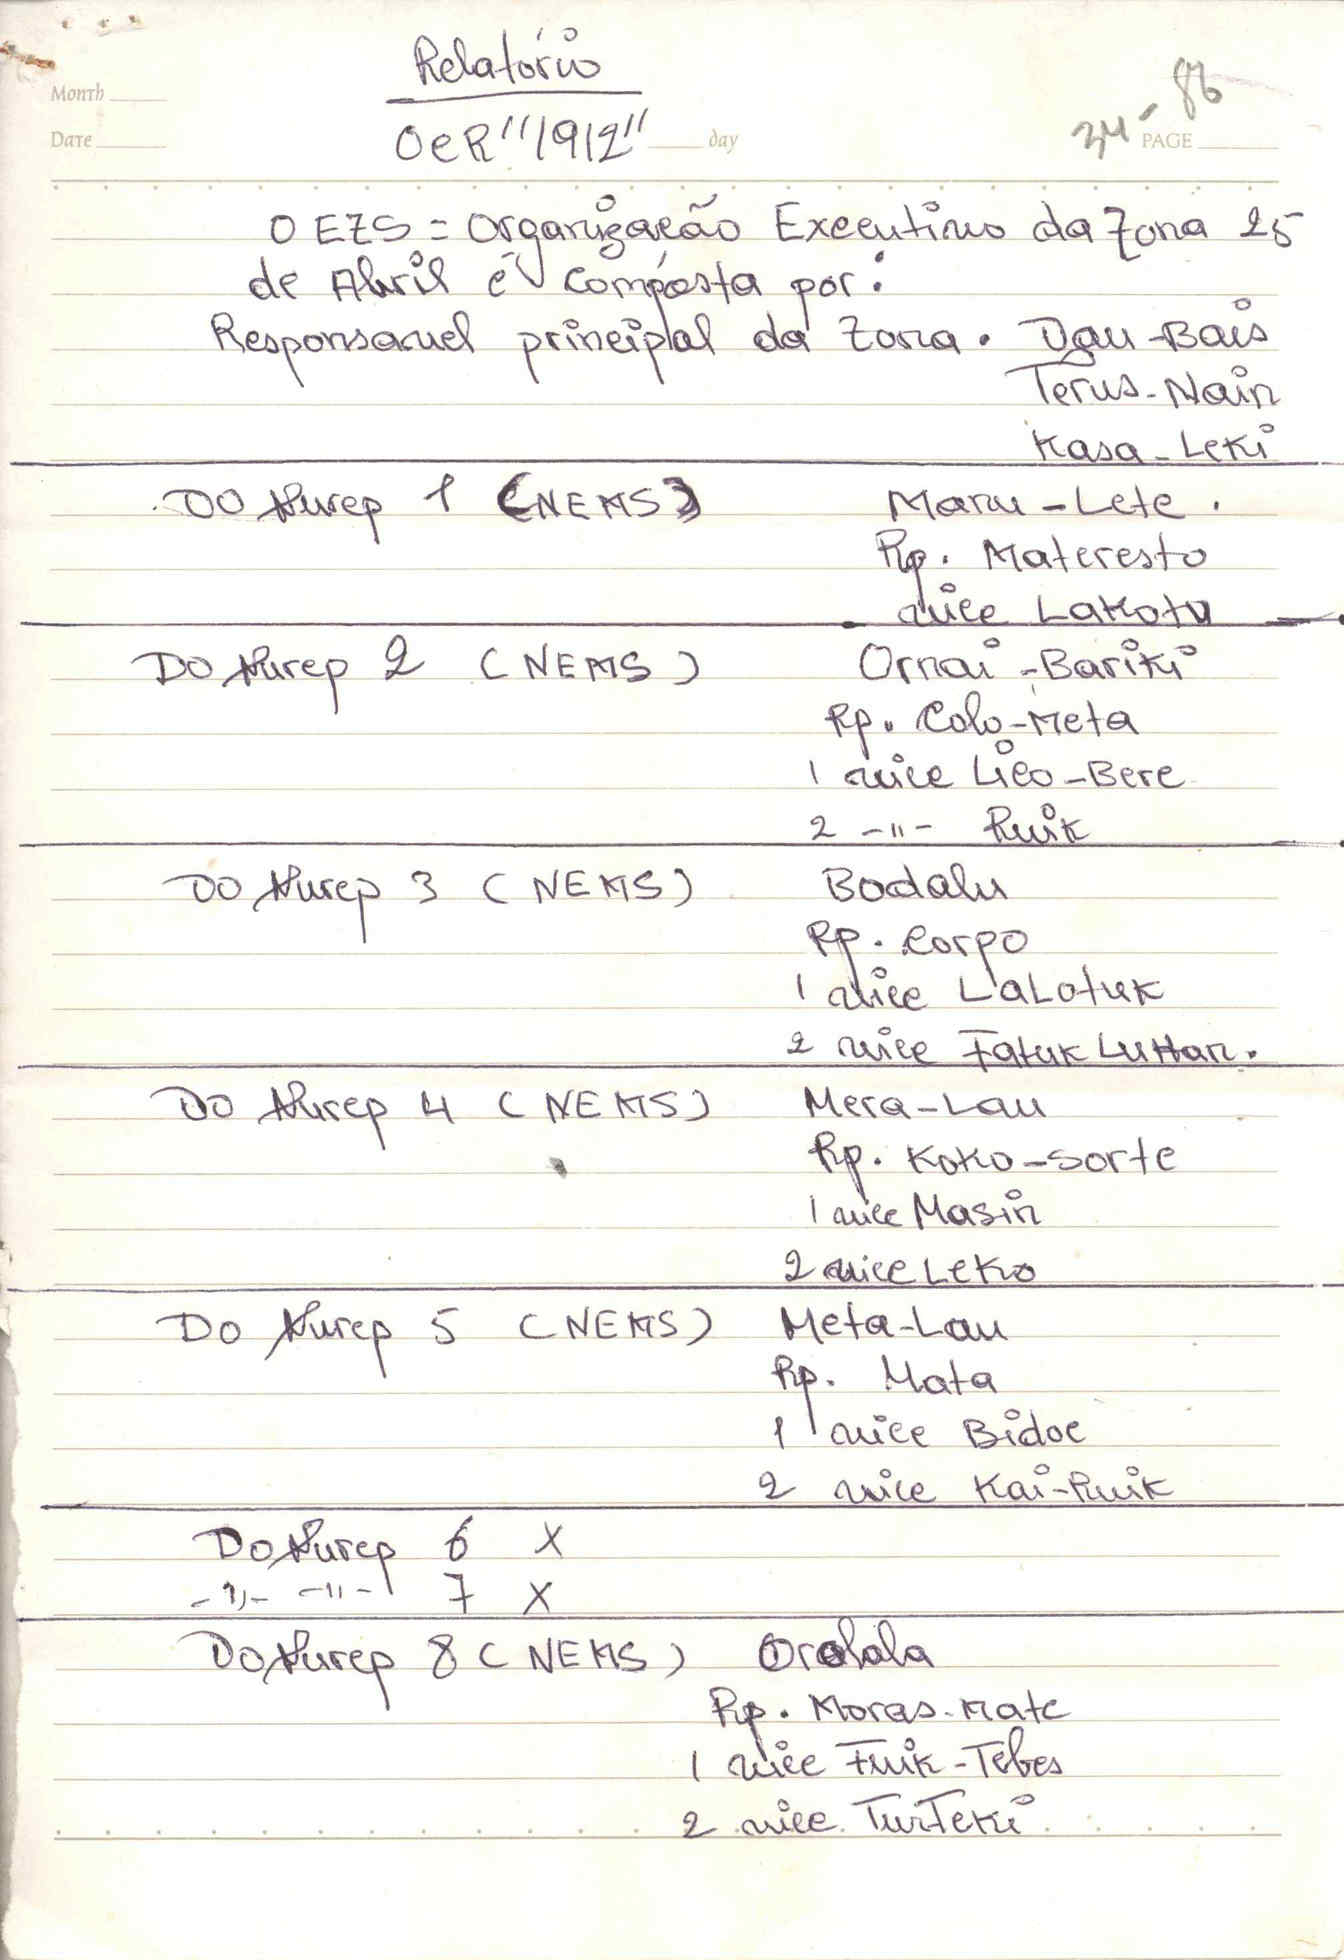 Relatório
Month
86
OeR "1912"
Date day 34- PAGE
O EZS = Organização Executivo da Zona 25
de Abril é composta por:
Responsavel principal da Zona. Dgau-Bais
Terus-Nain
Kasa-Leki
DO Nurep 1 (NEMS) Maru-Lete.
Rp. Materesto
vice Lakotu
DO Nurep 2 (NEMS) Ornai-Bariki
Rp. Colo-Meta
1 vice Lico-Bere
2 -"- Ruik
DO Nurep 3 (NEMS) Bodalu
Rp. Corpo
1 vice LaLotuk
2 vice Fatuk Luttan.
DO Nurep 4 (NEMS) Mera-Lau
Rp. Koko-sorte
1 vice Masin
2 vice Leko
DO Nurep 5 (NEMS) Meta-Lau
Rp. Mata
1 vice Bidoc
2 vice Kai-Ruik
DO Nurep 6 X
-"- -"- 7 X
DO Nurep 8 (NEMS) Orolala
Rp. Moras-Mate
1 vice Fuik-Tebes
2 vice TurTeki